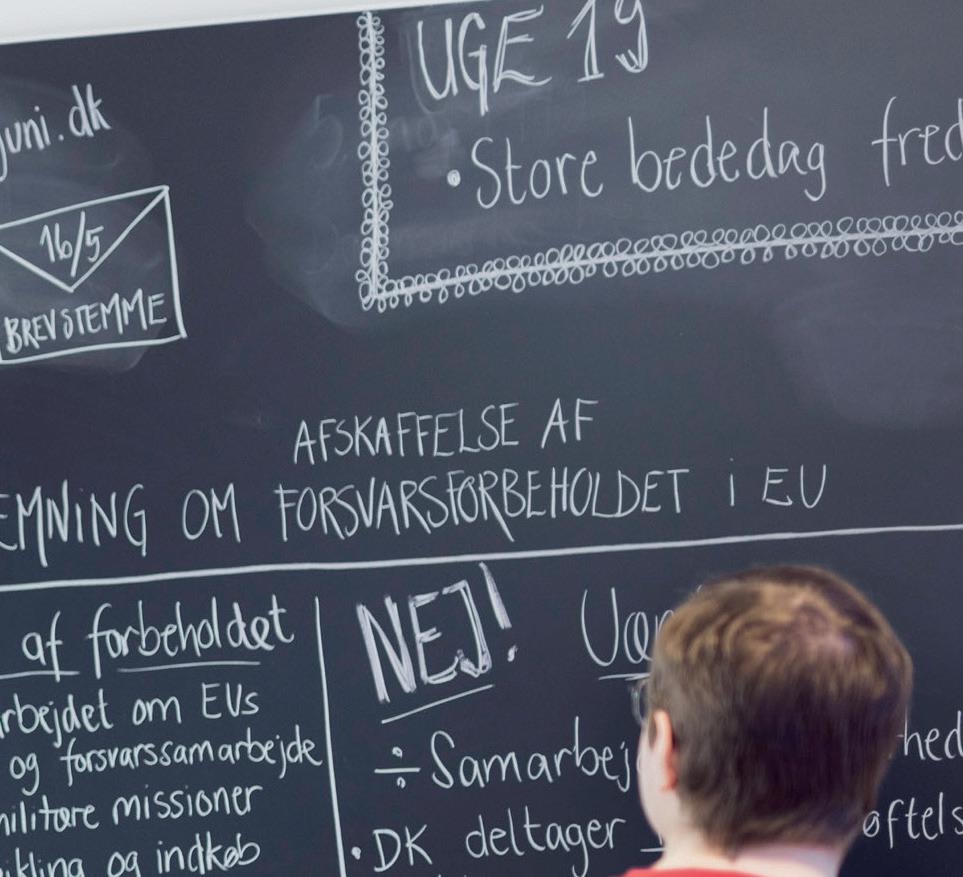 juni.dk
16/5
BREVSTEMME
UGE 19
• Store bededag fred
AFSKAFFELSE AF
EMNING OM FORSVARSFORBEHOLDET i EU
af forbeholdet
rbejdet om EUs
og forsvarssamarbejde
militære missioner
ikling og indkøb
NEJ!
÷ Samarbej hed
• DK deltager øftels